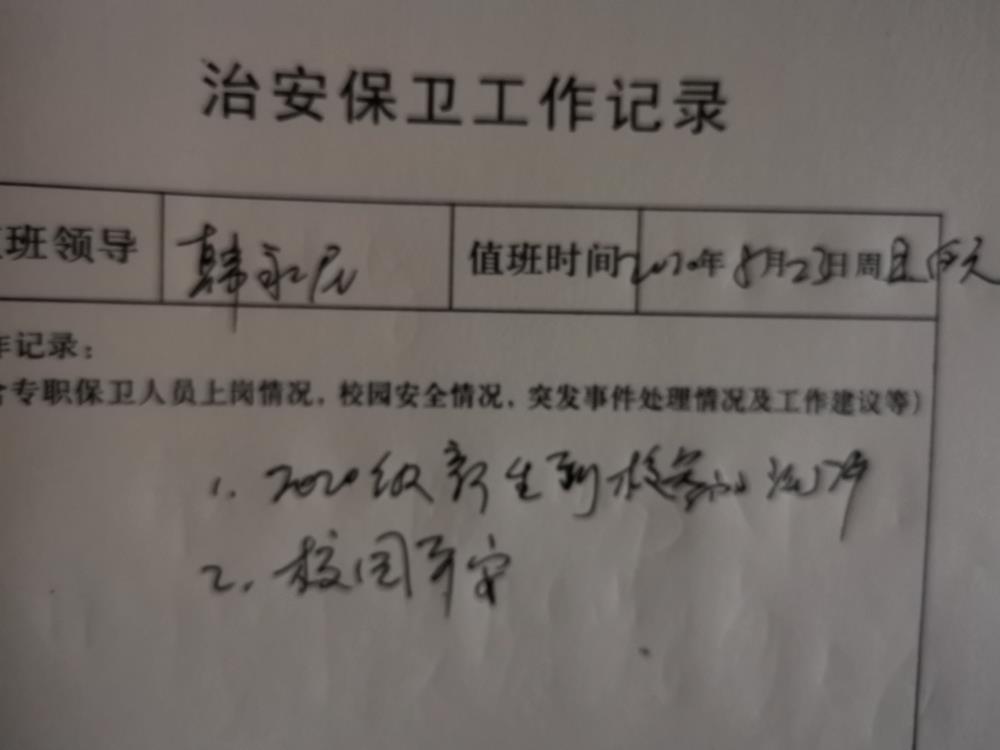 治安保卫工作记录
班领导 韩永 值班时间 2020年8月23日周日 白天
记录：
专职保卫人员上岗情况，校园安全情况，突发事件处理情况及工作建议等）
1. 2020级新生到校
2. 校园平安